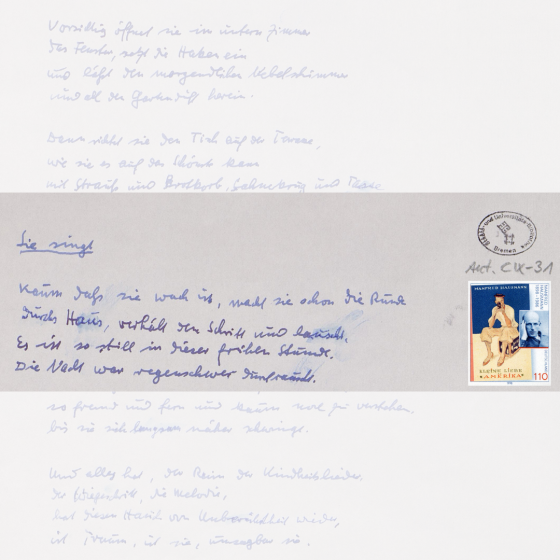 Vorsichtig öffnet sie im untern Zimmer
das Fenster, setzt die Haken ein
und läßt den morgendlichen Nebelschimmer
und all den Gartenduft herein.
Dann rückt sie den Tisch auf der Terrasse,
wie sie es auf das Schönste kann
mit Strauß und Brotkorb, Sahnekrug und Tasse
Sie singt
Kaum daß sie wach ist, macht sie schon die Runde
durchs Haus, verhält den Schritt und lauscht.
Es ist so still in dieser frühen Stunde.
Die Nacht war regenschwer durchrauscht.
Staats- und Universitätsbibliothek
Bremen
Aut. CIX-31
MANFRED HAUSMANN
KLEINE LIEBE
ZU
AMERIKA
MANFRED HAUSMANN
1898 - 1986
110
so fremd und fern und kaum noch zu verstehen,
bis sie sich langsam näher schwingt.
Und alles hat, der Reim der Kindheitslieder,
der die Melodie,
hat diesen Hauch von Unberührtheit wieder,
ist Traum, ist sie, unsagbar sie.